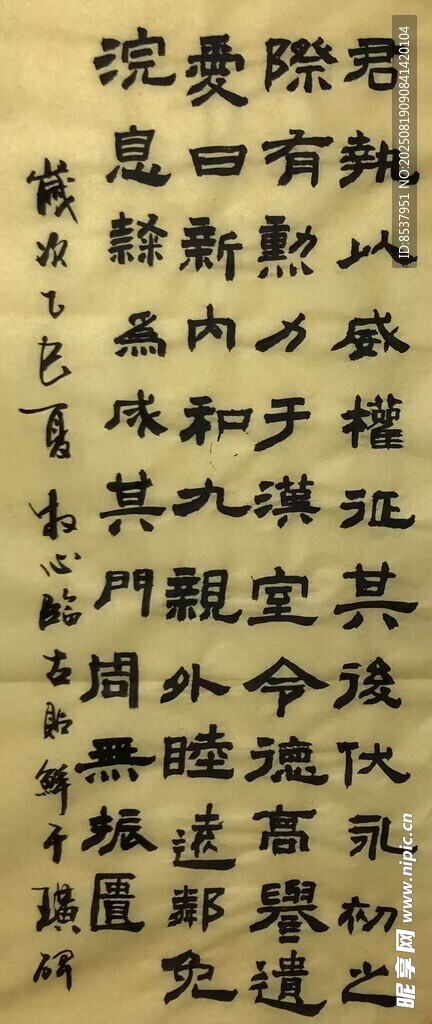 君執以威權征其後伏永初之
際有勳力于漢室令德高譽遺
愛日新内和九親外睦遠鄰免
浣息隸為成其門周無振匱
歲次乙巳夏牧心臨古貼鮮于璜碑
ID:8537951 NO:20250819090841420104
昵享网 www.nipic.cn